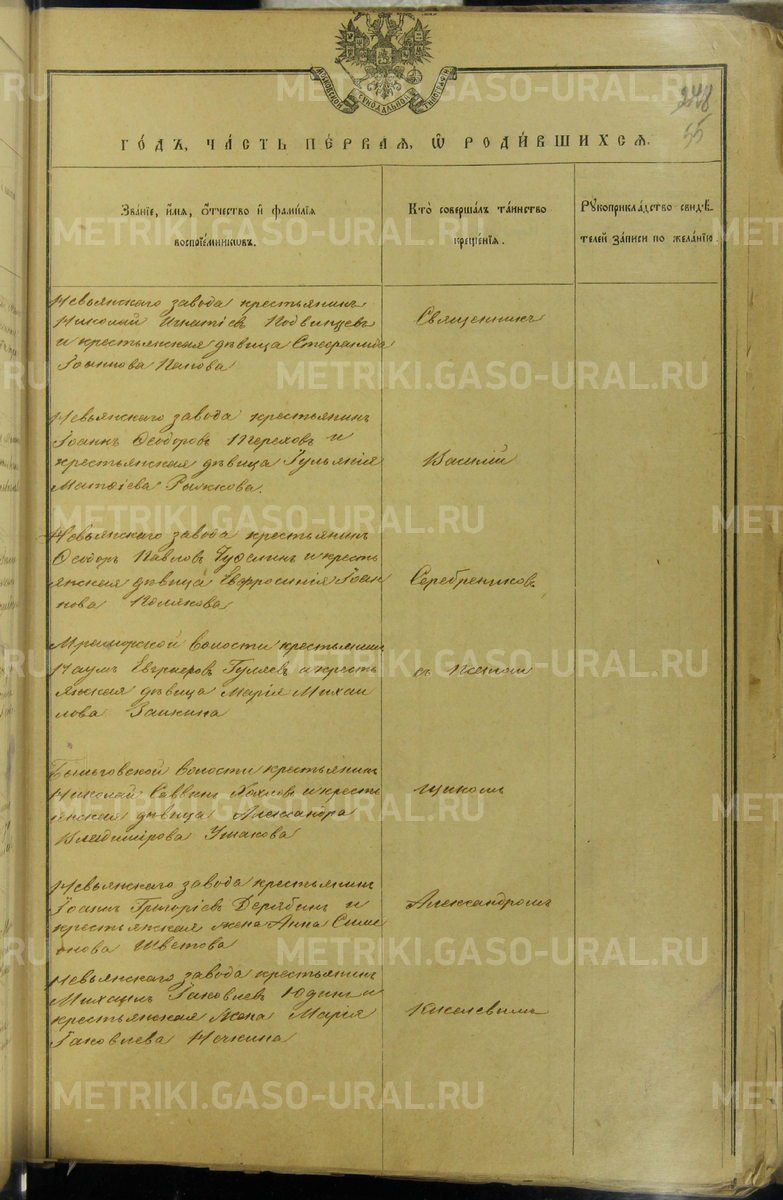 МОСКОВСКОЙ СѴНОДАЛЬНОЙ ТИПОГРАФІИ
248
55
ГО́ДЪ, ЧА́СТЬ ПЕ́РВАѦ, Ѡ҆ РОДИ́ВШИХСѦ.
Зва́нїе, и҆́мѧ, ѻ҆́тчество и҆ фами́лїѧ
воспрїе́мникѡвъ.
Кто̀ соверша́лъ та́инство
креще́нїѧ.
Рꙋкоприкла́дство свидѣ́-
телей за́писи по жела́нїю.
Невьянскаго завода крестьянинъ
Николай Игнатіевъ Подвинцевъ
и крестьянская дѣвица Стефанида
Іоаннова Попова
Священникъ
Невьянскаго завода крестьянинъ
Іоаннъ Ѳеодоровъ Тереховъ и
крестьянская дѣвица Іульянія
Матѳіева Рыжкова.
Василій
Невьянскаго завода крестьянинъ
Ѳеодоръ Павловъ и кресть
янская дѣвица Евфросинія Іоан
нова Полякова
Серебрениковъ
Мраморской волости крестьянинъ
Наумъ Гуляевъ и кресть
янская дѣвица Марія Михаи
лова Заикина
съ Псалом
Быньговской волости крестьянинъ
Николай Саввинъ Хохловъ и кресть
янская дѣвица Александра
Владимірова Ушакова
щикомъ
Невьянскаго завода крестьянинъ
Іоаннъ Григоріевъ Дерябинъ и
крестьянская жена Анна Симе
онова Шветова
Александромъ
Невьянскаго завода крестьянинъ
Михаилъ Іаковлевъ Юдинъ и
крестьянская жена Марія
Іаковлева Ночкина
Киселевымъ
METRIKI.GASO-URAL.RU